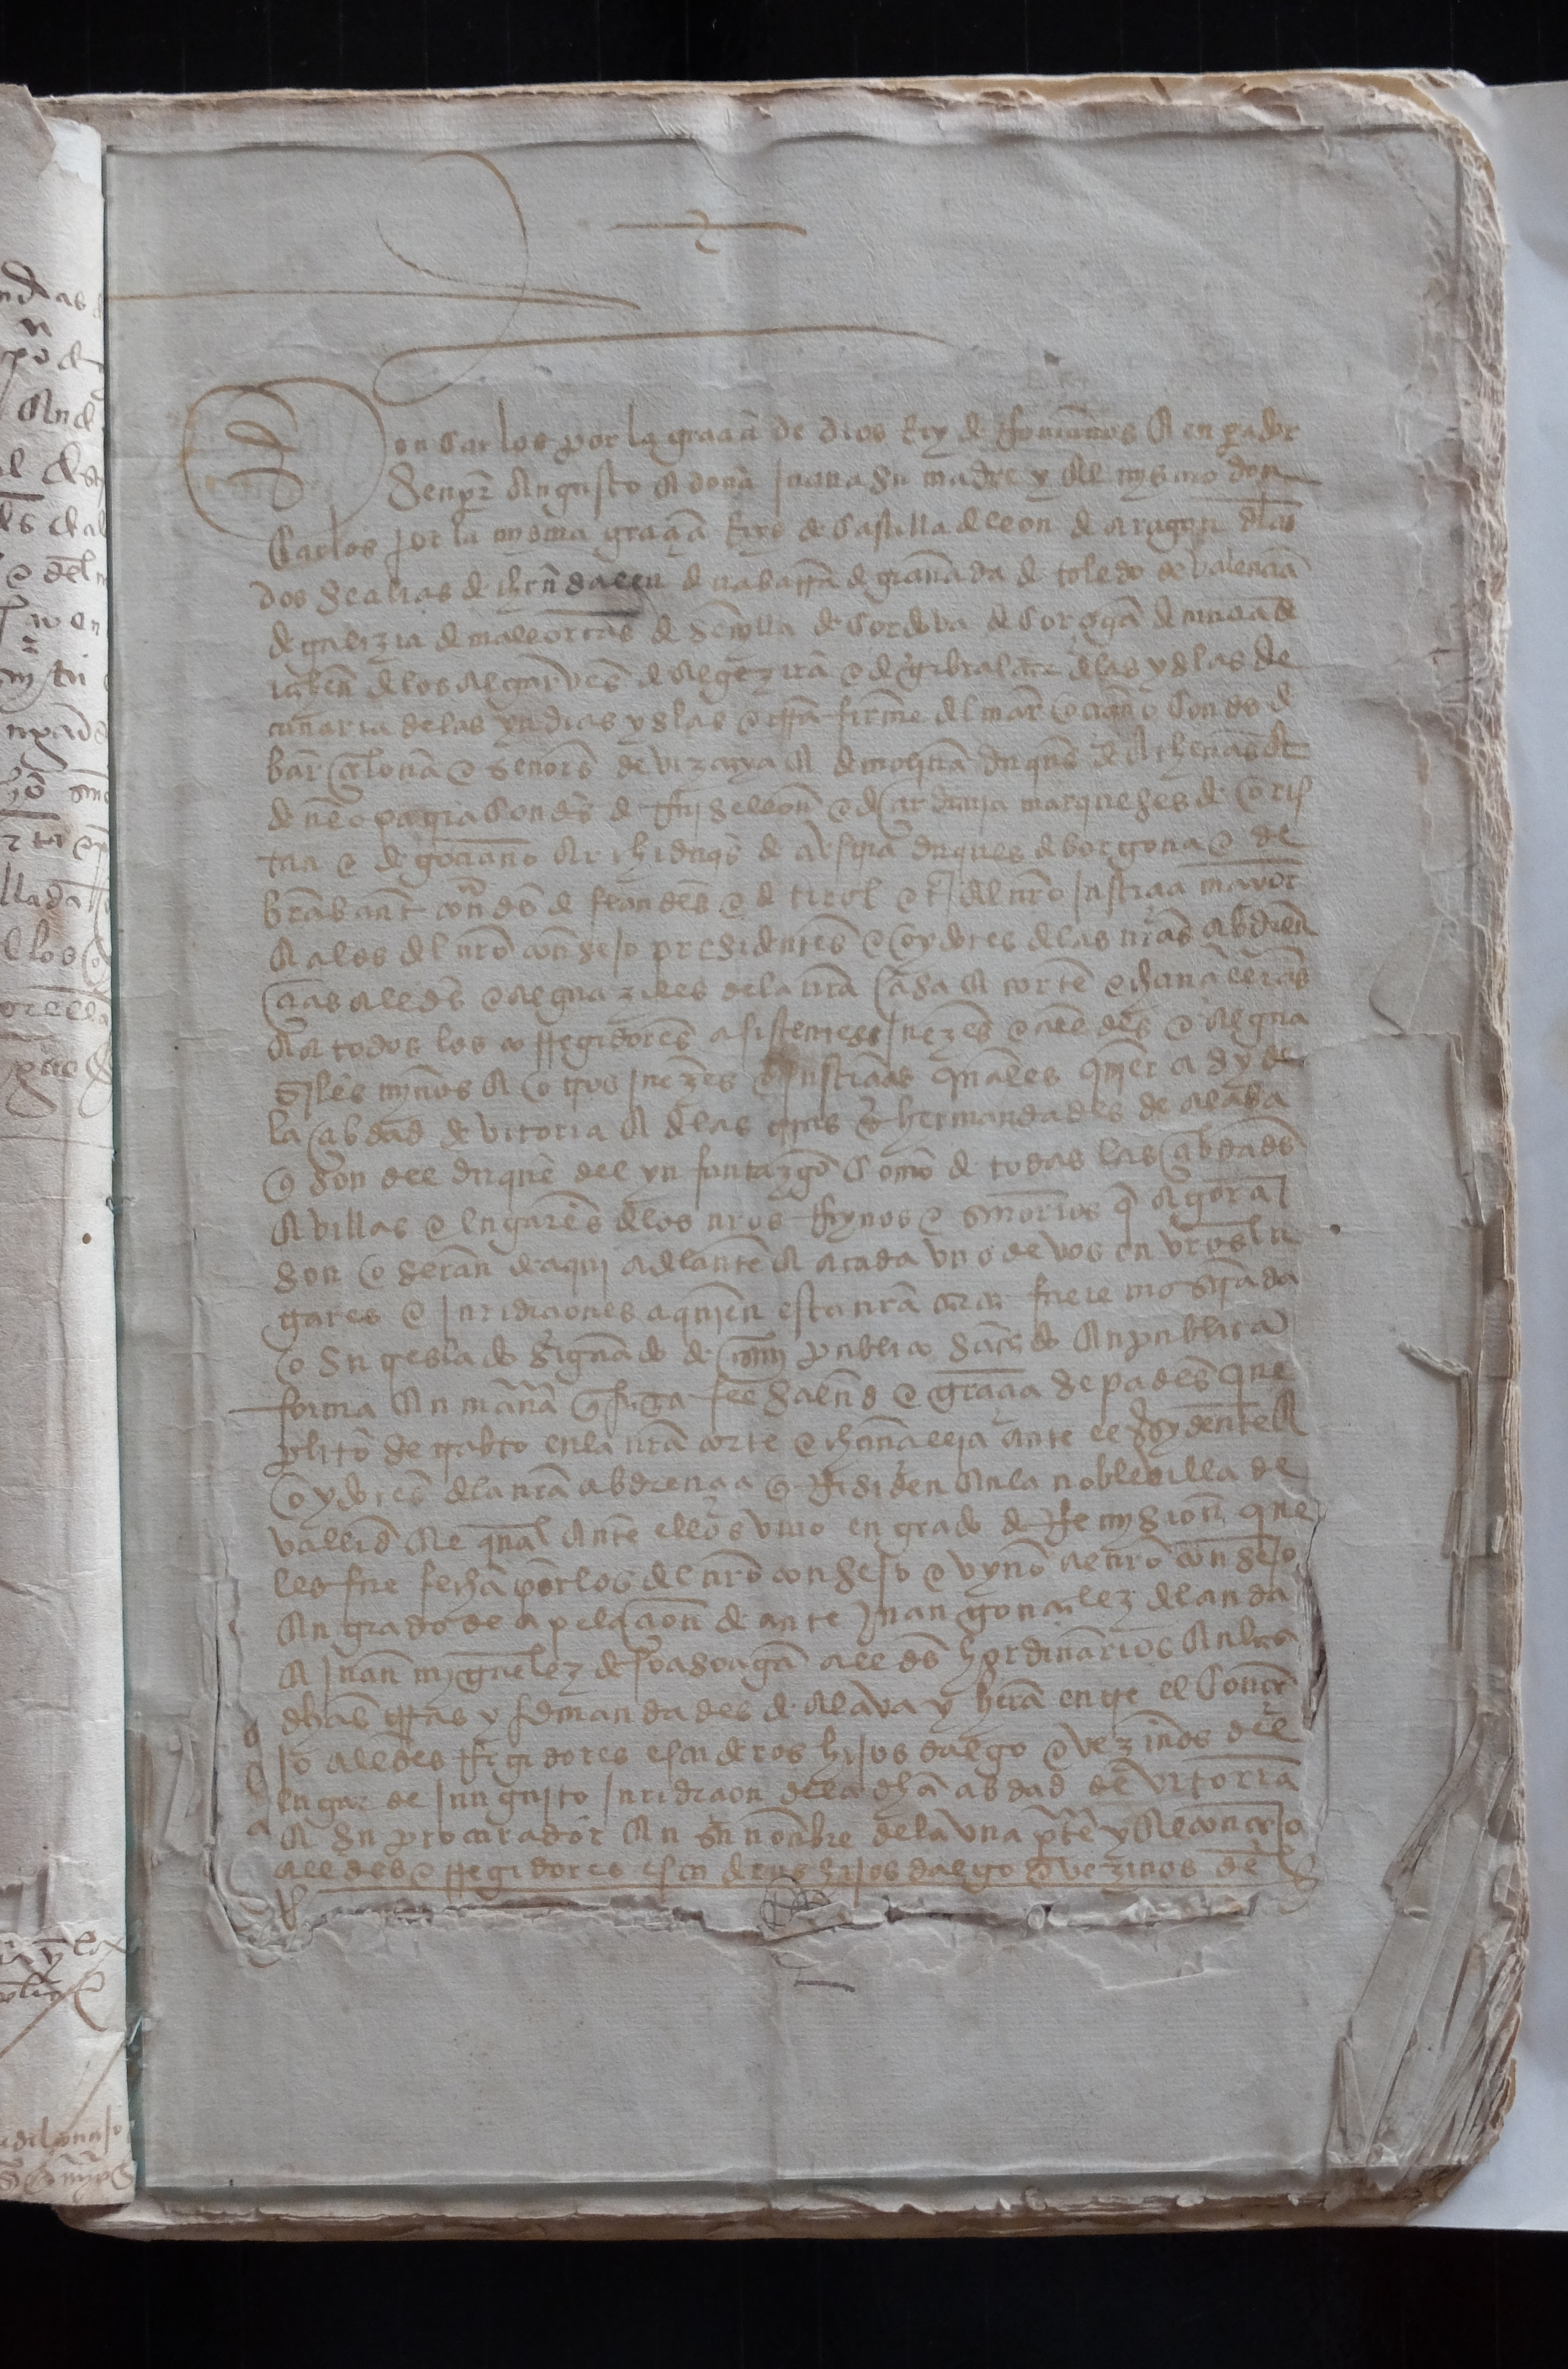 Don Carlos por la graçia de dios Rey de Romanos E enperador
senpre Augusto E doña Juana su madre y el mysmo don
Carlos por la mysma graçia Reyes de Castilla de leon de aragon delas
dos seçilias de iherusalen de nabarra de granada de toledo de balençia
de galizia de mallorcas de sevylla de Cordova de Corçega de murçia de
iahen delos algarves de algezira e de gibraltar delas yslas de
canaria delas yndias yslas e tierra firme del mar oçeano Condes de
barçelona e señores de vizcaya E de molina duques de Athenas
de neopatria Condes de Ruysellon e de çerdania marqueses de oris
tan e de goçiano Archiduques de abstria duques de borgoña e de
brabant condes de flandes e de tirol etc. Al nro Justiçia mayor
E alos del nro consejo presidentes e oydores delas nras abdien
çias allds e alguaziles dela nra Casa E corte e chançelleria
E a todos los corregidores asistentes Juezes e allds e algua
ziles mynos E otros Juezes e Justiçias quales quier asy de
la çibdad de vitoria E delas trras e hermandades de alaba
que son del duque del ynfantazgo Como de todas las çibdades
E villas e lugares delos nros Reynos e señorios que Agora
son o seran de aqui adelante E a cada vno de vos en vros lu
gares e Juridiçiones a quien esta nra carta fuere mostrada
o su treslado signado de escrivano publico sacado En publica
forma En manera que faga fee salud e graçia sepades que
plito se trato enla nra corte e chançelleria ante el presydente E
oydores dela nra abdiençia que Residen Enla noble villa de
vallid El qual Ante ellos vino en grado de Remysion que
les fue fecha por los del nro consejo e vyno al nro consejo
En grado de apelaçion de ante Juan gonçalez de landa
E Juan myguelez de allds hordinarios Enlas
dhas trras y hermandades de Alava y hera entre el Conçe
jo allds Regidores escuderos hijos dalgo e vezinos del
lugar de Junguitu Juridiçion dela dha çibdad de vitoria
E su procurador En su nonbre dela vna parte y El conçejo
allds e Regidores escuderos hijos dalgo e vezinos de